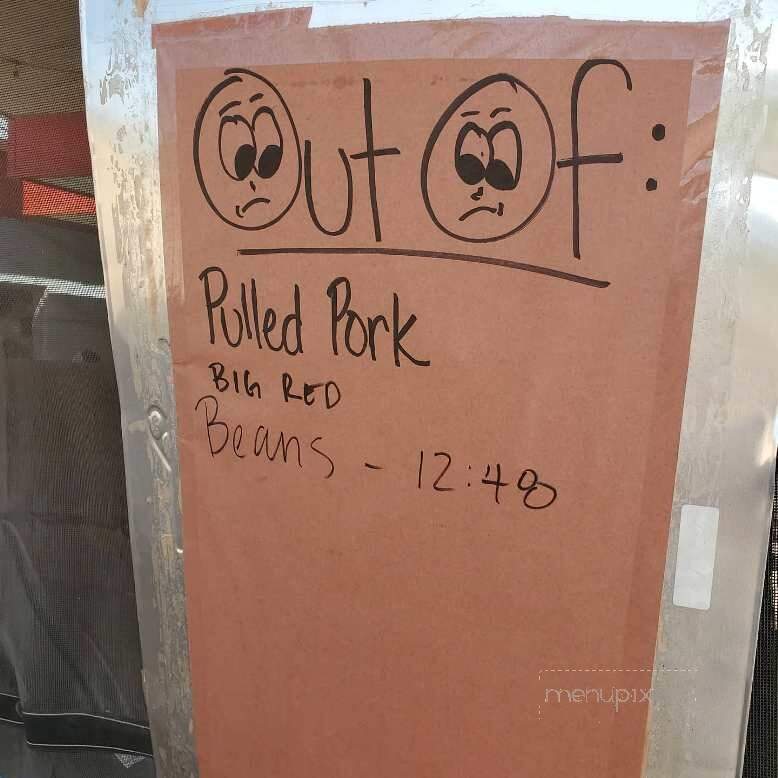 Out Of:
Pulled Pork
BIG RED
Beans - 12:48
menupix